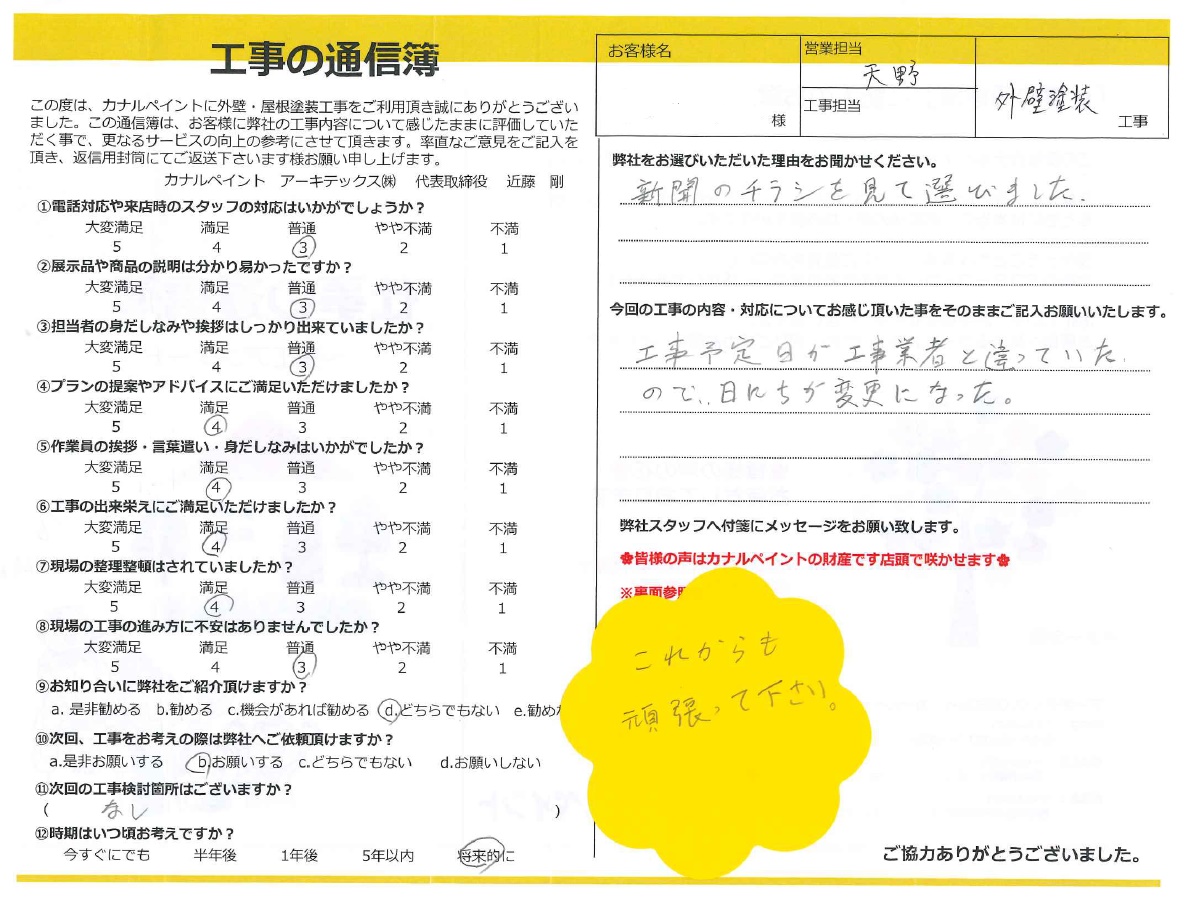 工事の通信簿
この度は、カナルペイントに外壁・屋根塗装工事をご利用頂き誠にありがとうござい
ました。この通信簿は、お客様に弊社の工事内容について感じたままに評価していた
だく事で、更なるサービスの向上の参考にさせて頂きます。率直なご意見をご記入を
頂き、返信用封筒にてご返送下さいます様お願い申し上げます。
カナルペイント アーキテックス㈱ 代表取締役 近藤 剛
①電話対応や来店時のスタッフの対応はいかがでしょうか？
大変満足 満足 普通 やや不満 不満
5 4 3 2 1
②展示品や商品の説明は分かり易かったですか？
大変満足 満足 普通 やや不満 不満
5 4 3 2 1
③担当者の身だしなみや挨拶はしっかり出来ていましたか？
大変満足 満足 普通 やや不満 不満
5 4 3 2 1
④プランの提案やアドバイスにご満足いただけましたか？
大変満足 満足 普通 やや不満 不満
5 4 3 2 1
⑤作業員の挨拶・言葉遣い・身だしなみはいかがでしたか？
大変満足 満足 普通 やや不満 不満
5 4 3 2 1
⑥工事の出来栄えにご満足いただけましたか？
大変満足 満足 普通 やや不満 不満
5 4 3 2 1
⑦現場の整理整頓はされていましたか？
大変満足 満足 普通 やや不満 不満
5 4 3 2 1
⑧現場の工事の進み方に不安はありませんでしたか？
大変満足 満足 普通 やや不満 不満
5 4 3 2 1
⑨お知り合いに弊社をご紹介頂けますか？
a. 是非勧める b.勧める c.機会があれば勧める d.どちらでもない e.勧めな
⑩次回、工事をお考えの際は弊社へご依頼頂けますか？
a.是非お願いする b.お願いする c.どちらでもない d.お願いしない
⑪次回の工事検討箇所はございますか？
( なし )
⑫時期はいつ頃お考えですか？
今すぐにでも 半年後 1年後 5年以内 将来的に
お客様名
様
営業担当
天野
工事担当
外壁塗装
工事
弊社をお選びいただいた理由をお聞かせください。
新聞のチラシを見て選びました.
今回の工事の内容・対応についてお感じ頂いた事をそのままご記入お願いいたします。
工事予定日が工事業者と違っていた
ので、日にちが変更になった。
弊社スタッフへ付箋にメッセージをお願い致します。
✿皆様の声はカナルペイントの財産です店頭で咲かせます✿
※裏面参照
これからも
頑張って下さい。
ご協力ありがとうございました。